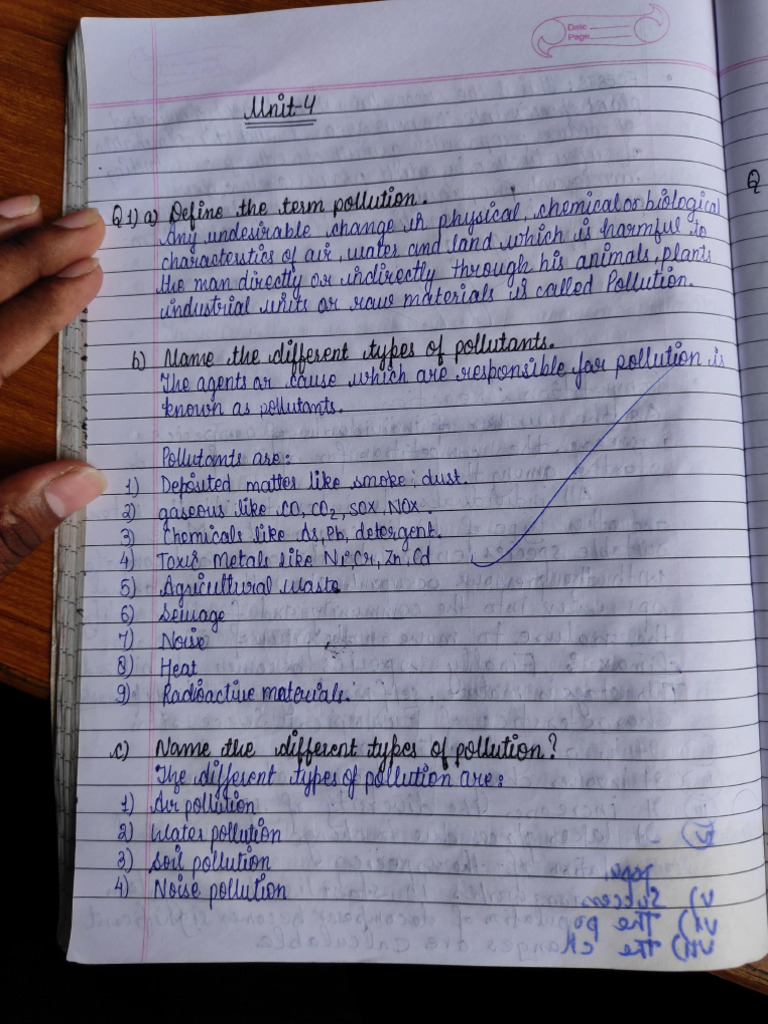 Date
Page
Unit-4
Q
Q1) a) Define the term pollution.
Any undesirable change in physical, chemical or biological
characteristics of air, water and land which is harmful to
the man directly or indirectly through his animals, plants
industrial units or raw materials is called Pollution.
b) Name the different types of pollutants.
The agents or cause which are responsible for pollution is
known as pollutants.
Pollutants are:
1) Deposited matter like smoke, dust.
2) gaseous like CO, CO2, SOX, NOX.
3) Chemicals like As, Ph, detergent.
4) Toxic Metals like Ni, Cr, Zn, Cd
5) Agricultural waste
6) Sewage
7) Noise
8) Heat
9) Radioactive materials.
c) Name the different types of pollution?
The different types of pollution are:
1) Air pollution
2) Water pollution
3) Soil pollution
4) Noise pollution